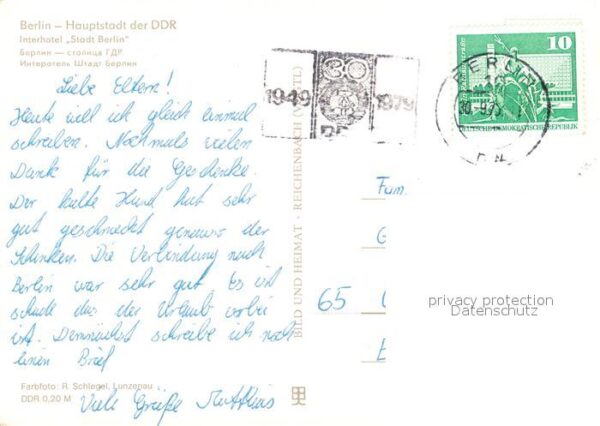 Berlin – Hauptstadt der DDR
Interhotel „Stadt Berlin"
Берлин — столица ГДР
Интеротель Штадт Берлин
Liebe Eltern!
Heute will ich gleich einmal
schreiben. Nochmals vielen
Dank für die Geschenke.
Der kalte Hund hat sehr
gut geschmeckt genauso der
Schinken. Die Verbindung nach
Berlin war sehr gut. Es ist
schade das der Urlaub vorbei
ist. Demnächst schreibe ich noch
einen Brief
Viele Grüße Matthias
Farbfoto: R. Schlegel, Lunzenau
DDR 0,20 M
BILD UND HEIMAT · REICHENBACH (VOGTL)
1949 30 1979
BERLIN
10
DEUTSCHE DEMOKRATISCHE REPUBLIK
Fam.
G
65
privacy protection
Datenschutz